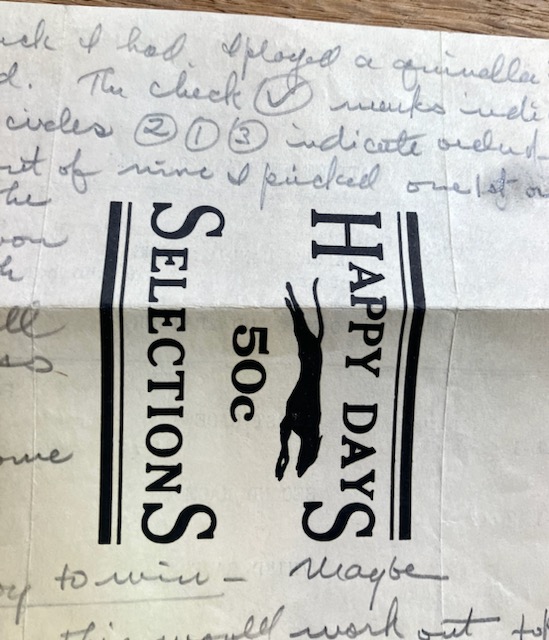 I had. I played a quinella
d. The check ✓ marks indi
circles ② ① ③ indicate
out of nine I picked one 1st
the
HAPPY DAYS
50c
SELECTIONS
to win — Maybe
this would work out